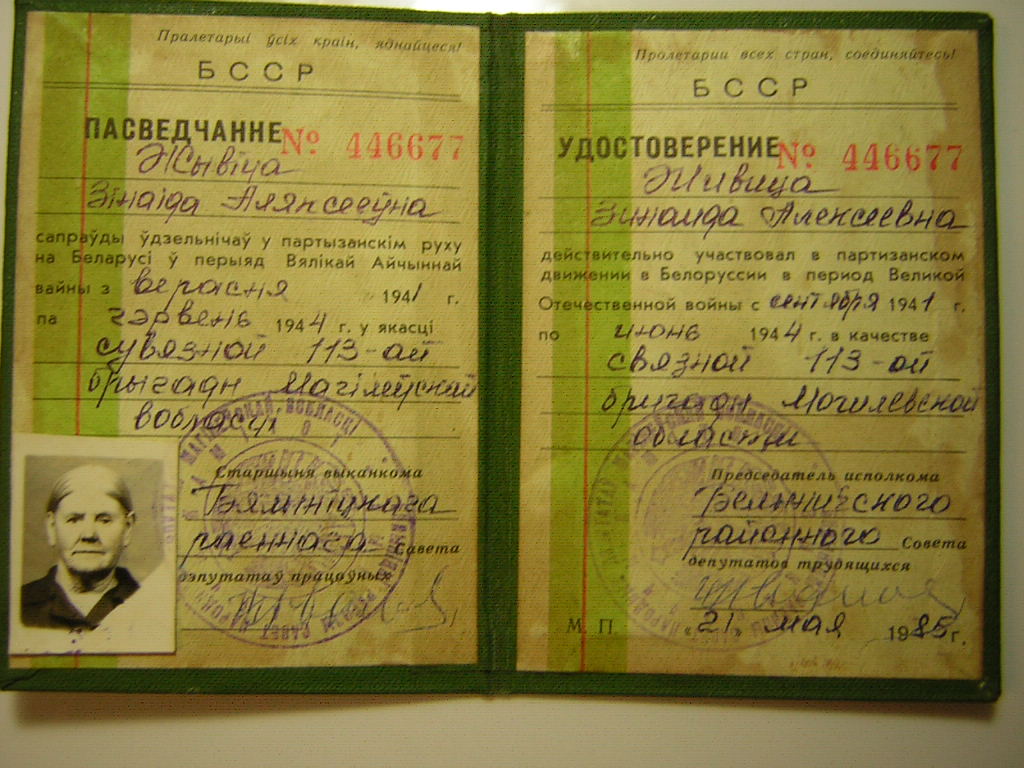 Пралетарыі ўсіх краін, яднайцеся!
БССР
ПАСВЕДЧАННЕ № 446677
Жывіца
Зінаіда Аляксееўна
сапраўды ўдзельнічаў у партызанскім руху
на Беларусі ў перыяд Вялікай Айчыннай
вайны з верасня 1941 г.
па чэрвень 1944 г. у якасці
сувязной 113-ай
брыгады Магілеўскай
вобласці
Старшыня выканкома
Бялыніцкага
раённага Савета
дэпутатаў працоўных
Пролетарии всех стран, соединяйтесь!
БССР
УДОСТОВЕРЕНИЕ № 446677
Живица
Зинаида Алексеевна
действительно участвовал в партизанском
движении в Белоруссии в период Великой
Отечественной войны с сентября 1941 г.
по июнь 1944 г. в качестве
связной 113-ой
бригады Могилевской
области
Председатель исполкома
Белыничского
районного Совета
депутатов трудящихся
М. П. «21» мая 1985 г.